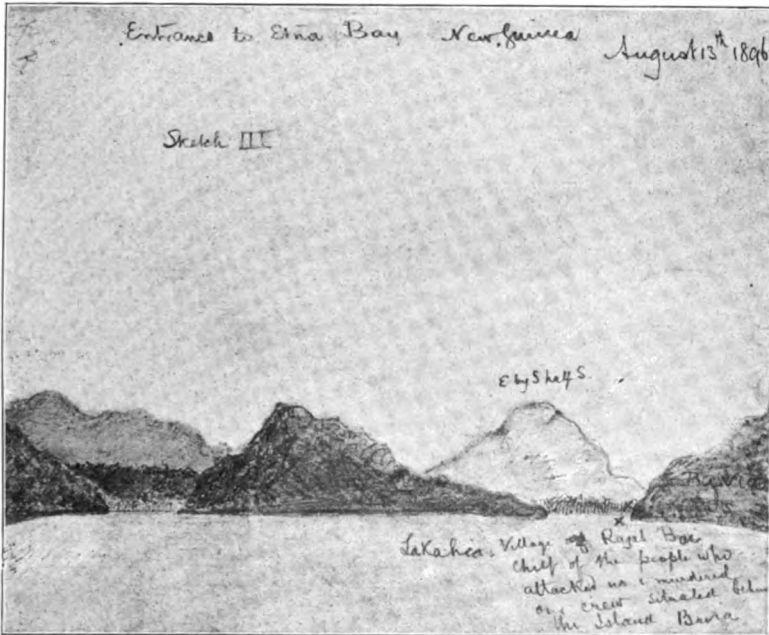 Entrance to Etna Bay New Guinea
August 13th 1896
Sketch III
E by S half S.
Lakahia Village of Rajah
chief of the people who
attacked us & murdered
our crew situated
the Island